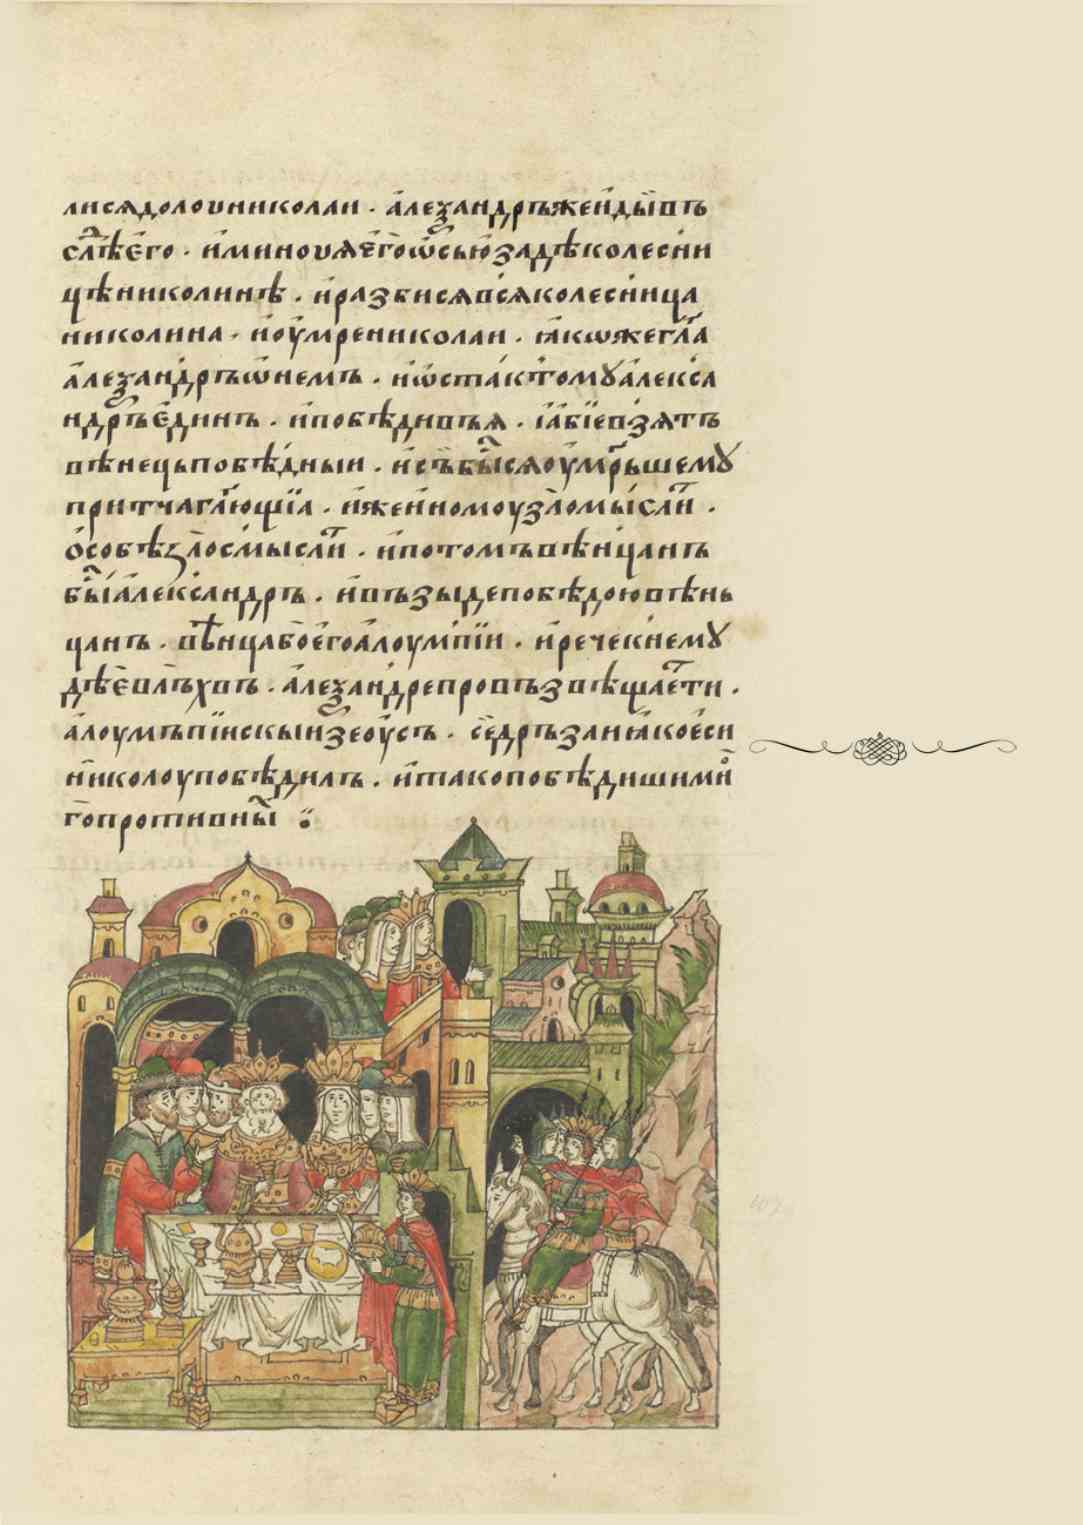 лисѧдолоуниколаи · а́леѯандръжеи́дывъ
слѣ́дꙗ́е́го · и́миноуѧе́го́ѡсью́задѣколесни
цѣниколинѣ · и́разбисѧвсѧколесница
николина · и́оу́мрениколаи · ꙗ́кѡжегл҃а
а́леѯандръѡ́немъ · и́ѡ́ста́ктомꙋа́лекса
ндръе́динъ · и́побѣдивъѧ · і́а́бїевзѧтъ
вѣнецьпобѣ́дныи · и́съ́бы́сѧоу́мръшемꙋ
притчагл҃ющїа · и́жеи́номоузло́мы́сли́ ·
о́собѣѕло́смы́сли́ · и́потомъвѣнчанъ
бы́а́леѯа́ндръ · и́възыдепобѣдоювѣнь
чанъ · вѣнцабое́гоа́лоумпїи · и́речекнемꙋ
дѣе́влъхвъ · а́леѯа́ндрепровъзвѣщае́ти ·
а́лоумъпїискыизео́усъ · се́дръзаиꙗ́кое́си
николоупобѣдилъ · и́такопобѣдишимно
го́противны́